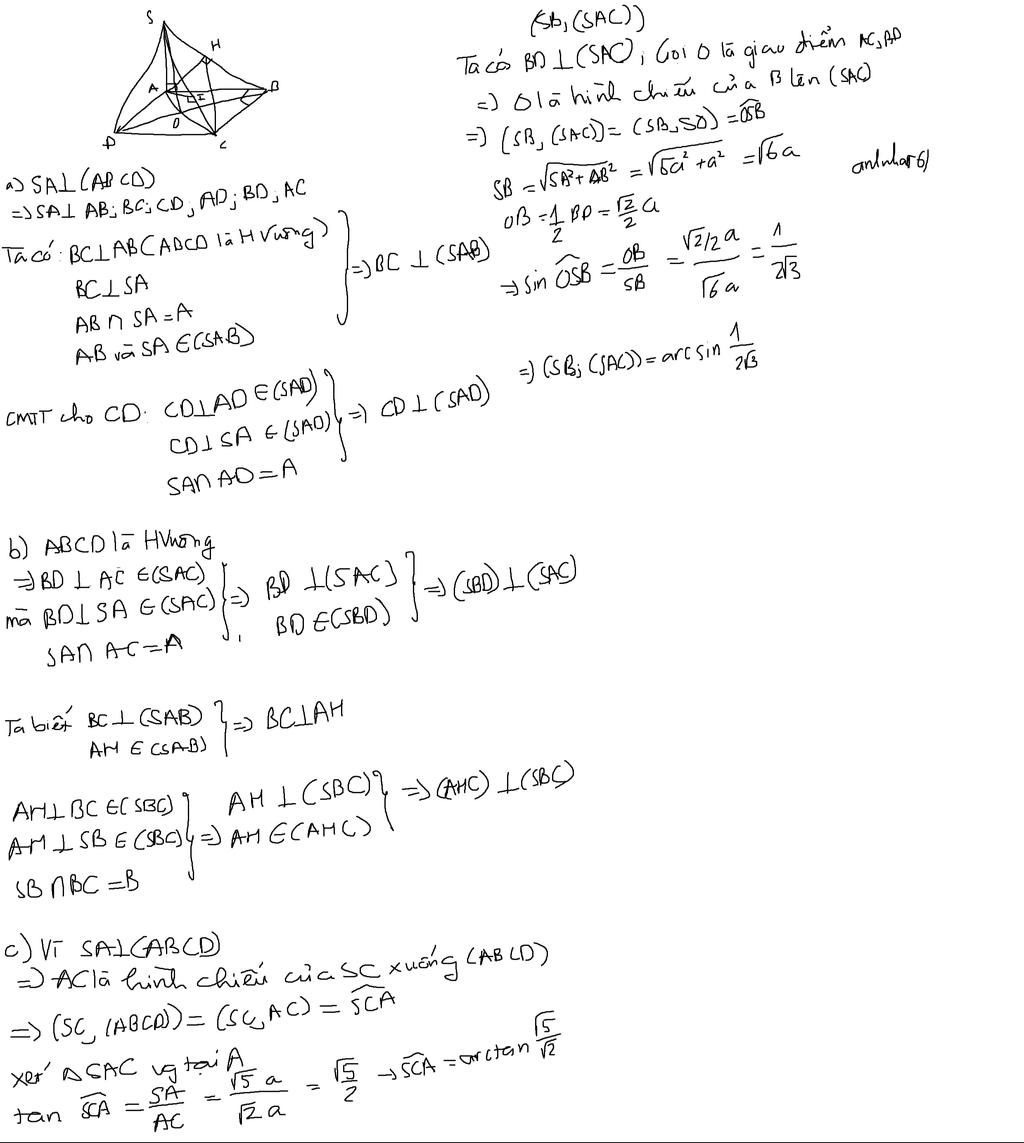 S
H
A
I
B
O
D
C
a) SA⊥(ABCD)
=> SA⊥ AB; BC; CD, AD; BD, AC
Ta có: BC⊥AB (ABCD là H Vuông)
BC⊥SA
AB ∩ SA = A
AB và SA ∈(SAB)
=> BC ⊥ (SAB)
CMTT cho CD: CD⊥AD ∈(SAD)
CD⊥SA ∈(SAD)
SA∩ AD = A
=> CD⊥(SAD)
b) ABCD là HVuông
=> BD ⊥ AC ∈(SAC)
mà BD⊥SA ∈(SAC)
SA∩ AC = A
=> BD ⊥(SAC)
BD ∈(SBD)
=> (SBD)⊥(SAC)
Ta biết BC⊥(SAB)
AH ∈(SAB)
=> BC⊥AH
AH⊥BC ∈(SBC)
AH⊥SB ∈(SBC)
SB ∩BC = B
=> AH ⊥(SBC)
AH ∈(AHC)
=> (AHC) ⊥(SBC)
c) Vì SA⊥(ABCD)
=> AC là hình chiếu của SC xuống (ABCD)
=> (SC, (ABCD)) = (SC, AC) = \widehat{SCA}
xét △SAC vg tại A
tan \widehat{SCA} = SA/AC = √5 a/√2 a = √5/2 → \widehat{SCA} = arctan √5/√2
(SB, (SAC))
Ta có BD⊥(SAC), Gọi O là giao điểm AC, BD
=> O là hình chiếu của B lên (SAC)
=> (SB, (SAC)) = (SB, SO) = \widehat{OSB}
SB = √SA²+AB² = √5a²+a² = √6a
OB = 1/2 BD = √2/2 a
=> sin \widehat{OSB} = OB/SB = √2/2 a/√6 a = 1/2√3
=> (SB; (SAC)) = arcsin 1/2√3